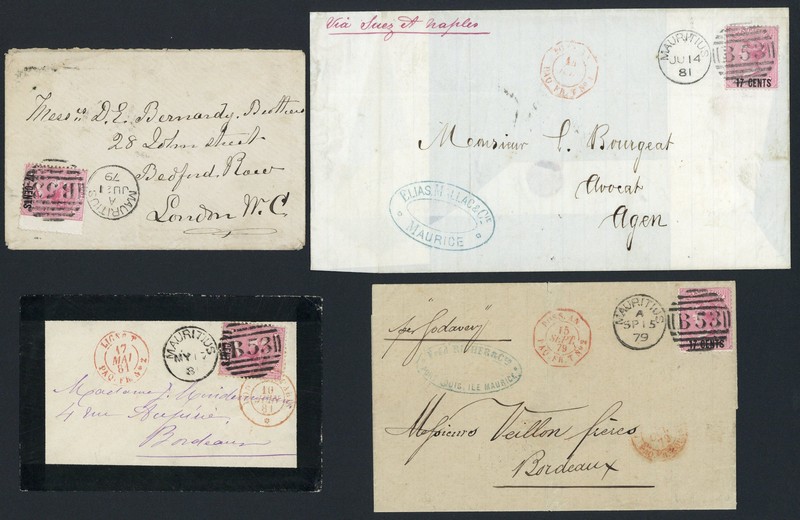 Messrs D. E. Bernardy Brothers
28 John Street
Bedford Row
London W.C.
B53
17 CENTS
MAURITIUS
A
JU 1
79
Via Suez et Naples
MAURITIUS
JU 14
81
B53
17 CENTS
Monsieur L. Bourgeat
Avocat
Agen
ELIAS
& CIE
MAURICE
LIGNE T
17
MAI
81
PAQ. FR. Nº 2
MAURITIUS
MY
B53
Madame
4 rue
Bordeaux
"per Godavery"
LIGNE T
15
SEPT.
79
PAQ. FR. Nº 2
MAURITIUS
A
SP 15
79
B53
17 CENTS
PORT LOUIS, ILE MAURICE
Messieurs Veillon frères
Bordeaux